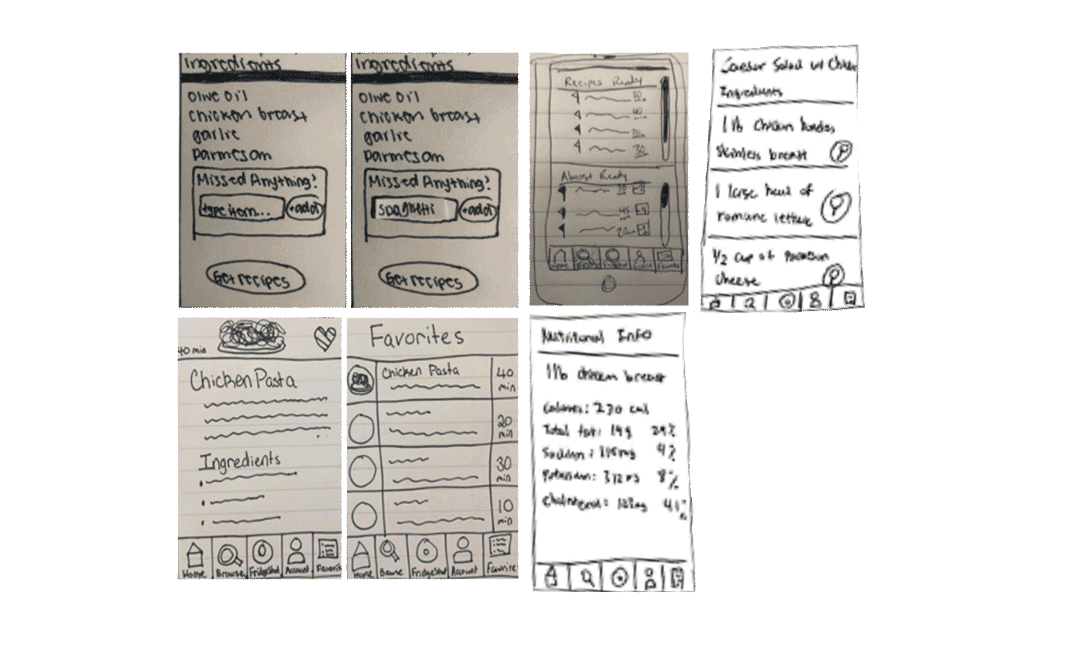 Ingredients
Olive Oil
chicken breast
garlic
parmesan
Missed Anything?
type item...
+add
Get recipes
Ingredients
Olive Oil
chicken breast
garlic
parmesan
Missed Anything?
spaghetti
+add
Get recipes
Recipes Ready
30
40
30
Almost Ready
Home
Salad w/ Chicken
Ingredients
1 lb Chicken
skinless breast
1 large head of
romaine lettuce
1/2 cup of
cheese
40 min
Chicken Pasta
Ingredients
Home Browse FridgeShot Account Favorite
Favorites
Chicken Pasta
40
min
20
min
30
min
10
min
Home Browse FridgeShot Account Favorite
Nutritional Info
1 lb chicken breast
Calories: 230 cal
Total fat: 19g
4%
8%